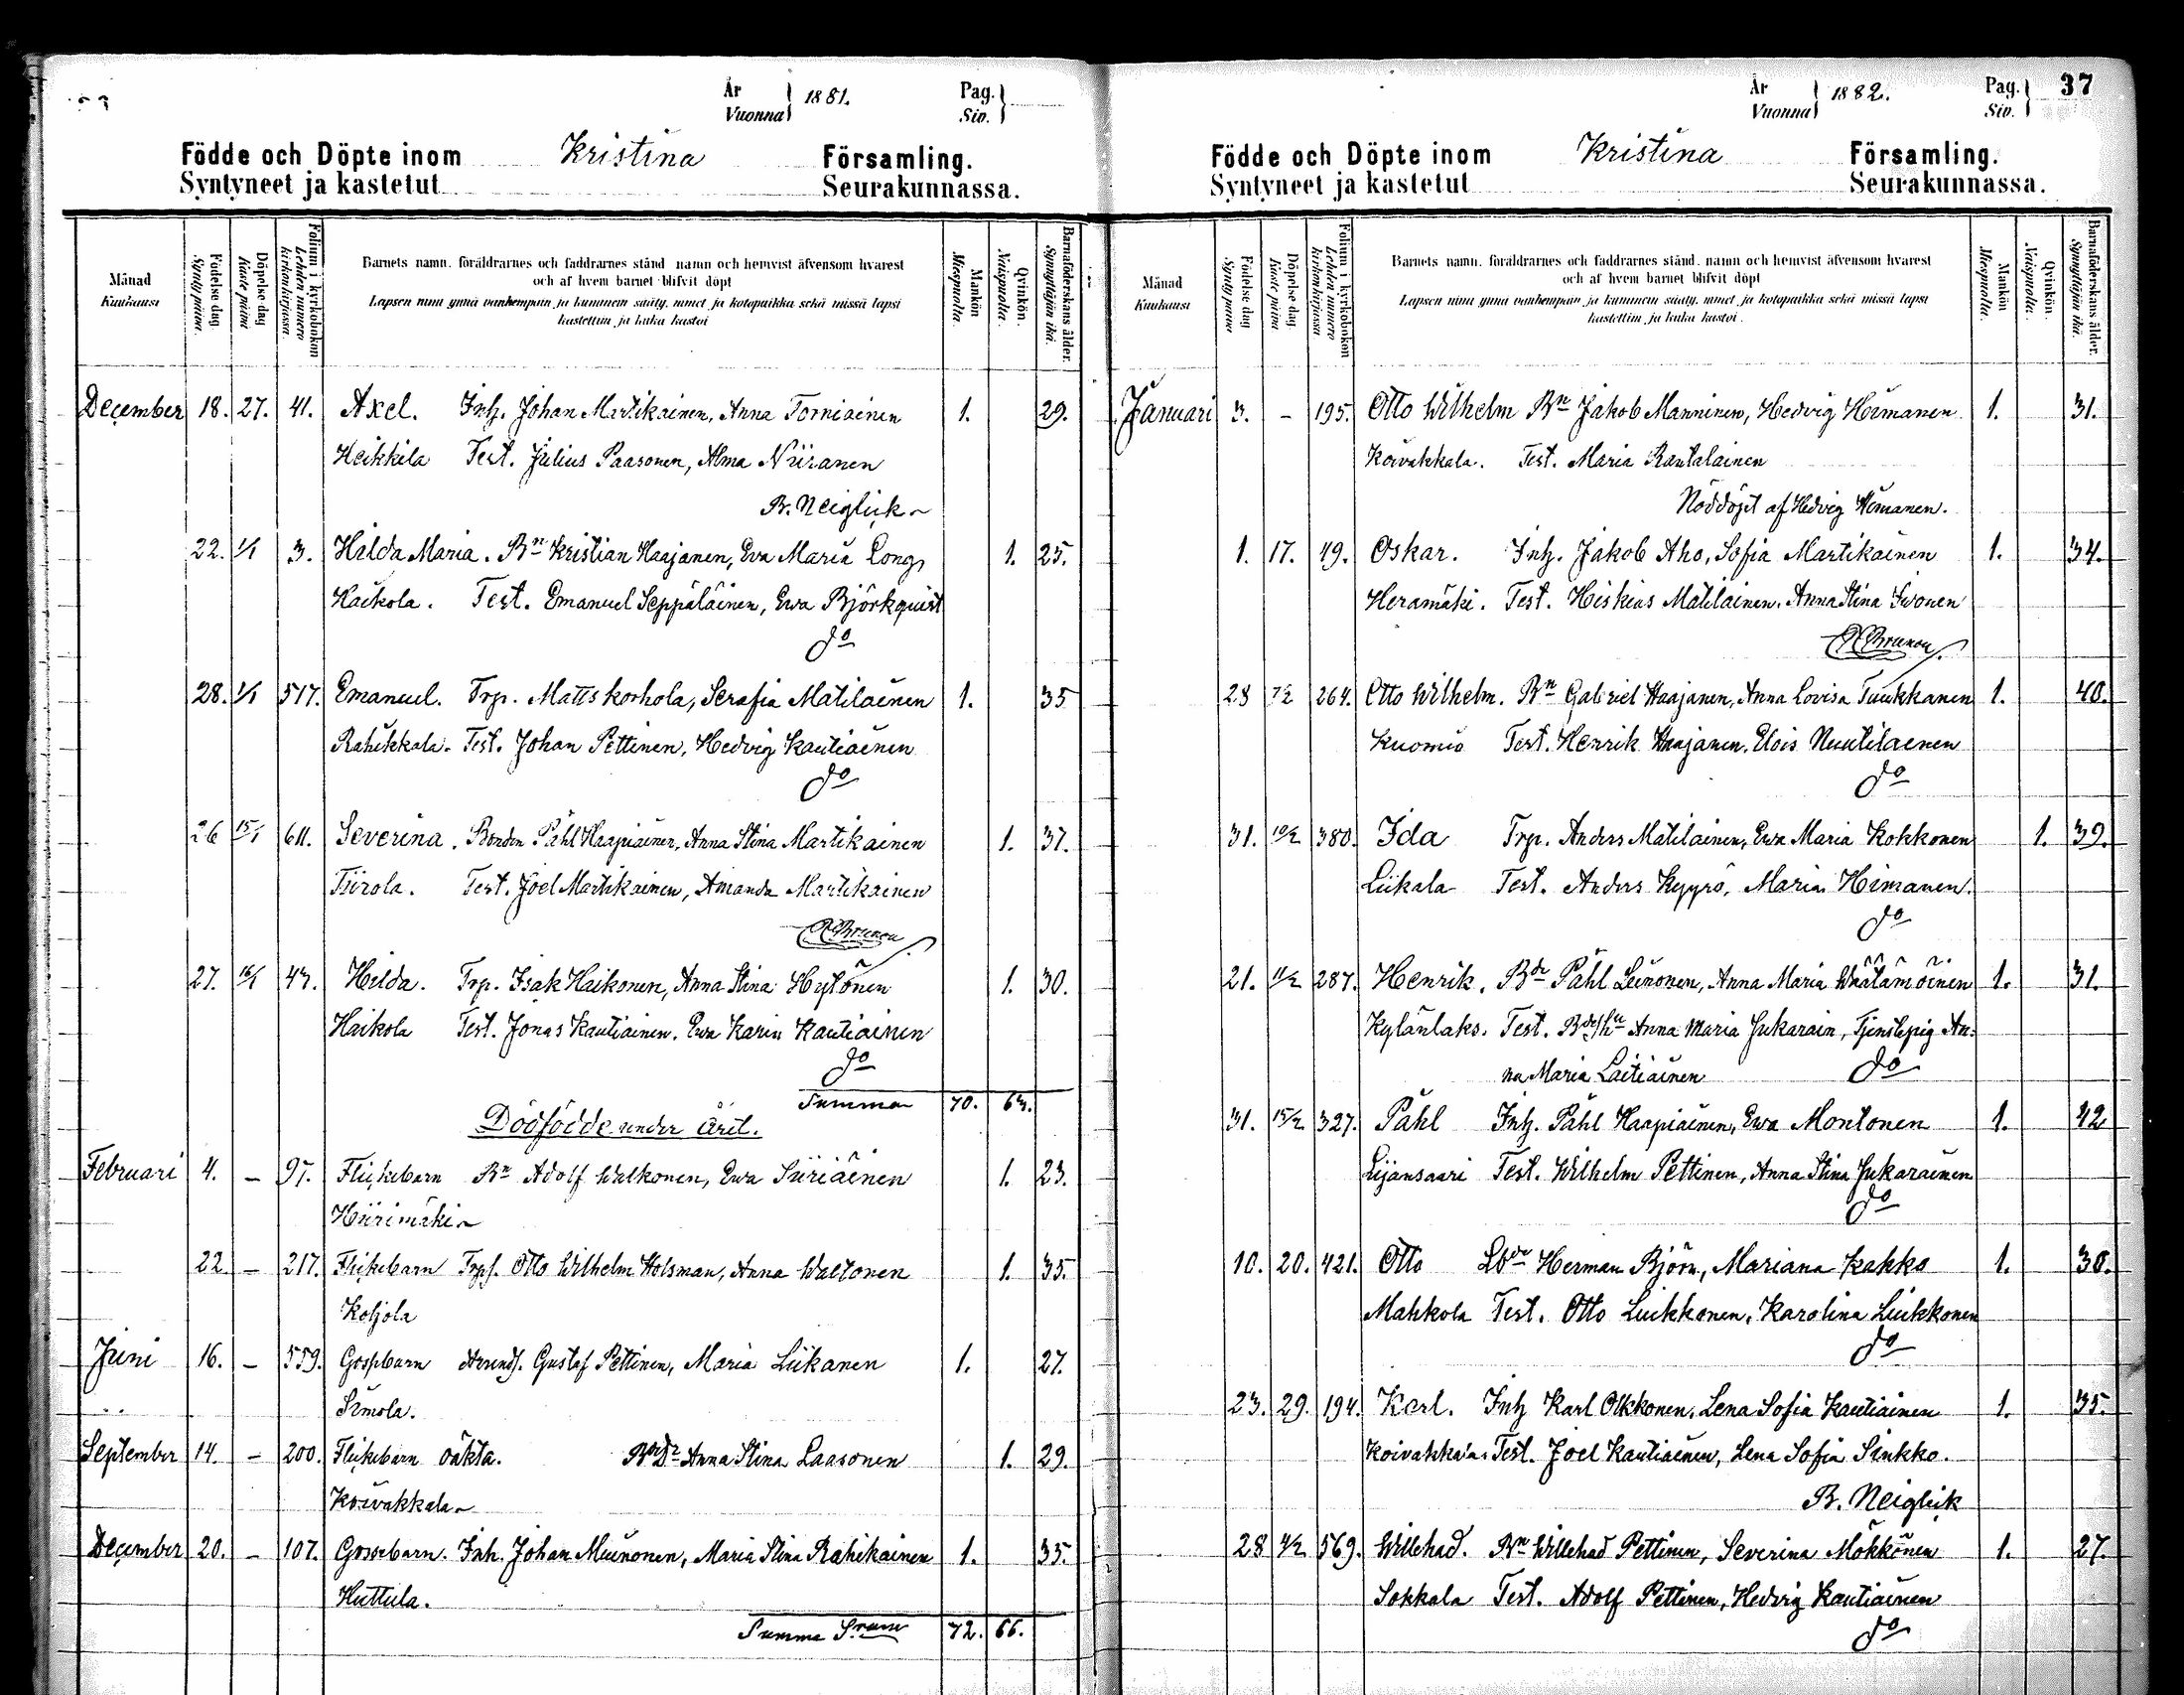 År 1881. Pag.
Vuonna Siv.
Födde och Döpte inom Kristina Församling.
Syntyneet ja kastetut Seurakunnassa.
Månad
Kuukausi
Födelse dag
Synty päivä.
Döpelse dag
Kaste päivä
Folium i kyrkoboken
Lehden numero kirkonkirjassa.
Barnets namn, föräldrarnes och faddrarnes stånd namn och hemvist äfvensom hvarest
och af hvem barnet blifvit döpt
Lapsen nimi ynnä vanhempain ja kummein sääty, nimet ja kotopaikka sekä missä lapsi
kastettiin ja kuka kastoi
Mankön
Miespuolta.
Qvinkön.
Naispuolta.
Barnaföderskans ålder.
Synnyttäjän ikä.
December 18. 27. 41. Axel. Inh. Johan Martikainen, Anna Torniainen 1. 29.
Heikkila Test. Julius Paasonen, Alma Niiranen
B. Neiglick
22. 1/1 3. Hilda Maria. Bn Kristian Haajanen, Eva Maria Long, 1. 25.
Haikola. Test. Emanuel Seppäläinen, Ewa Björkquist
do
28. 1/1 517. Emanuel. Trp. Matts Korhola, Serafia Matilainen 1. 35
Rahikkala. Test. Johan Pettinen, Hedvig Kautiainen
do
26 15/1 611. Severina. Bonden Påhl Haapiainen, Anna Stina Martikainen 1. 37.
Tiirola. Test. Joel Martikainen, Amanda Martikainen
27. 16/1 43. Hilda. Trp. Isak Haikonen, Anna Stina Hytönen 1. 30.
Haikola Test. Jonas Kautiainen. Ewa Karin Kautiainen
do
Summa 70. 63.
Dödfödde under året.
Februari 4. – 97. Flickebarn Bn Adolf Walkonen, Ewa Siiriäinen 1. 23.
Hiirimäki
22. – 217. Flickebarn Otto Wilhelm Holsman, Anna Waltonen 1. 35.
Koljola
Juni 16. – 559. Gossebarn Gustaf Pettinen, Maria Liikanen 1. 27.
Simola.
September 14. – 200. Flickebarn oäkta. Anna Stina Laasonen 1. 29.
Koivakkala
December 20. – 107. Gossebarn. Inh. Johan Muinonen, Maria Stina Rahikainen 1. 35.
Huttula.
Summa 72. 66.
År 1882. Pag. 37
Vuonna Siv.
Födde och Döpte inom Kristina Församling.
Syntyneet ja kastetut Seurakunnassa.
Månad
Kuukausi
Födelse dag
Synty päivä
Döpelse dag
Kaste päivä
Folium i kyrkoboken
Lehden numero kirkonkirjassa
Barnets namn, föräldrarnes och faddrarnes stånd, namn och hemvist äfvensom hvarest
och af hvem barnet blifvit döpt
Lapsen nimi ynnä vanhempain ja kummein sääty, nimet ja kotopaikka sekä missä lapsi
kastettiin ja kuka kastoi.
Mankön
Miespuolta.
Qvinkön.
Naispuolta.
Barnaföderskans ålder.
Synnyttäjän ikä.
Januari 3. – 195. Otto Wilhelm Bn Jakob Manninen, Hedvig Himanen 1. 31.
Koivakkala. Test. Maria Rautalainen
Nöddöpt af Hedvig Himanen.
1. 17. 49. Oskar. Inh. Jakob Aho, Sofia Martikainen 1. 34.
Heramäki. Test. Hiskias Matilainen. Anna Stina Iivonen
28 7/2 264. Otto Wilhelm. Bn Gabriel Haajanen, Anna Lovisa Tuukkanen 1. 40.
Kuomio Test. Henrik Haajanen. Elois Nuutilainen
do
31. 10/2 380. Ida Trp. Anders Matilainen, Ewa Maria Kokkonen 1. 39.
Liikala Test. Anders Kyyrö, Maria Himanen.
do
21. 11/2 287. Henrik. Bde Påhl Leinonen, Anna Maria Wäätämöinen 1. 31.
Kylänlaks. Test. Anna Maria Jukarain, Tjenstepig An-
na Maria Laitiainen do
31. 15/2 327. Påhl Inh. Påhl Haapiainen, Ewa Montonen 1. 42
Lijansaari Test. Wilhelm Pettinen, Anna Stina Jukarainen
do
10. 20. 421. Otto Herman Björn, Mariana Kakko 1. 30.
Mahkola Test. Otto Liukkonen, Karolina Liukkonen
do
23. 29. 194. Karl. Inh Karl Olkkonen, Lena Sofia Kautiainen 1. 35.
Koivakkala Test. Joel Kautiainen, Lena Sofia Sinkko.
B. Neiglick
28 4/2 569. Willehad. Bn Willehad Pettinen, Severina Mökkönen 1. 27.
Sokkala Test. Adolf Pettinen, Hedvig Kautiainen
do